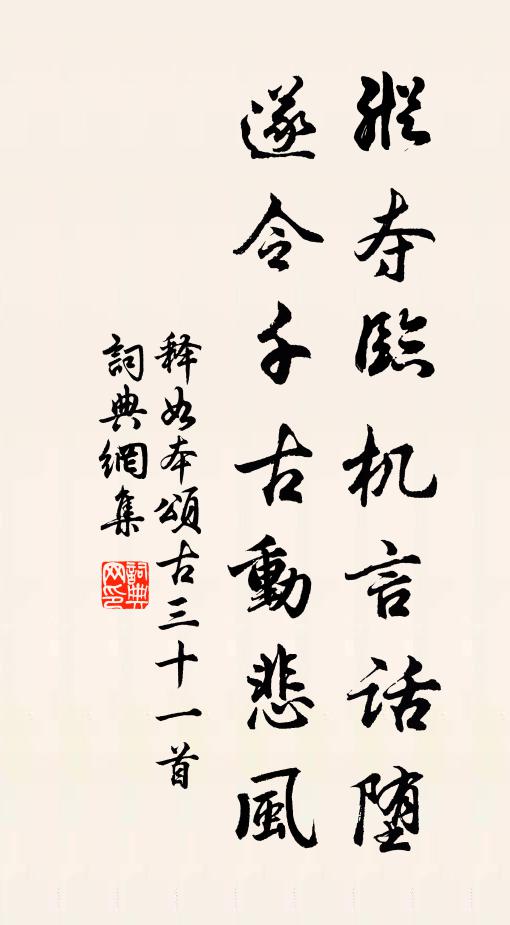 縱夺臨机言话堕
遂令千古動悲風
释如本頌古三十一首
詞典網集
詞典网印